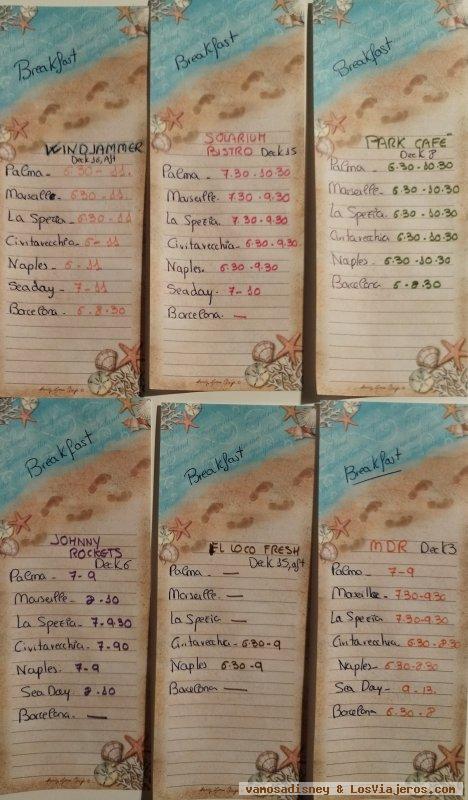 Breakfast
WINDJAMMER
Deck 16, Aft
Palma - 6.30 - 11.
Marseille - 6.30 - 11.
La Spezia - 6.30 - 11
Civitavecchia - 6 - 11
Naples - 6 - 11
Sea day - 7 - 11
Barcelona - 6 - 8.30
Breakfast
SOLARIUM
BISTRO Deck 15
Palma - 7.30 - 10.30
Marseille - 7.30 - 9.30
La Spezia - 7.30 - 9.30
Civitavecchia - 6.30 - 9.30
Naples. 6.30 - 9.30
Sea day. 7 - 10
Barcelona. —
Breakfast
PARK CAFE
Deck 8
Palma - 6.30 - 10.30
Marseille - 6.30 - 10.30
La Spezia. 6.30 - 10.30
Civitavecchia 6.30 - 10.30
Naples. 6.30 - 10.30
Barcelona 6 - 8.30
Breakfast
JOHNNY
ROCKETS
Deck 6
Palma - 7-9
Marseille - 8 - 10
La Spezia - 7 - 9.30
Civitavecchia - 7-90
Naples. 7-9
Sea Day. 8 - 10
Barcelona. —
Breakfast
EL LOCO FRESH
Deck 15, aft
Palma - —
Marseille. —
La Spezia —
Civitavecchia - 6.30 - 9
Naples 6.30 - 9
Barcelona —
Breakfast
MDR Deck 3
Palma - 7-9
Marseille - 7.30-9.30
La Spezia 7.30-9.30
Civitavecchia 6.30-8.30
Naples - 6.30-8.30
Sea Day - 9 - 13.
Barcelona 6.30 - 8
vamosadisney & LosViajeros.com